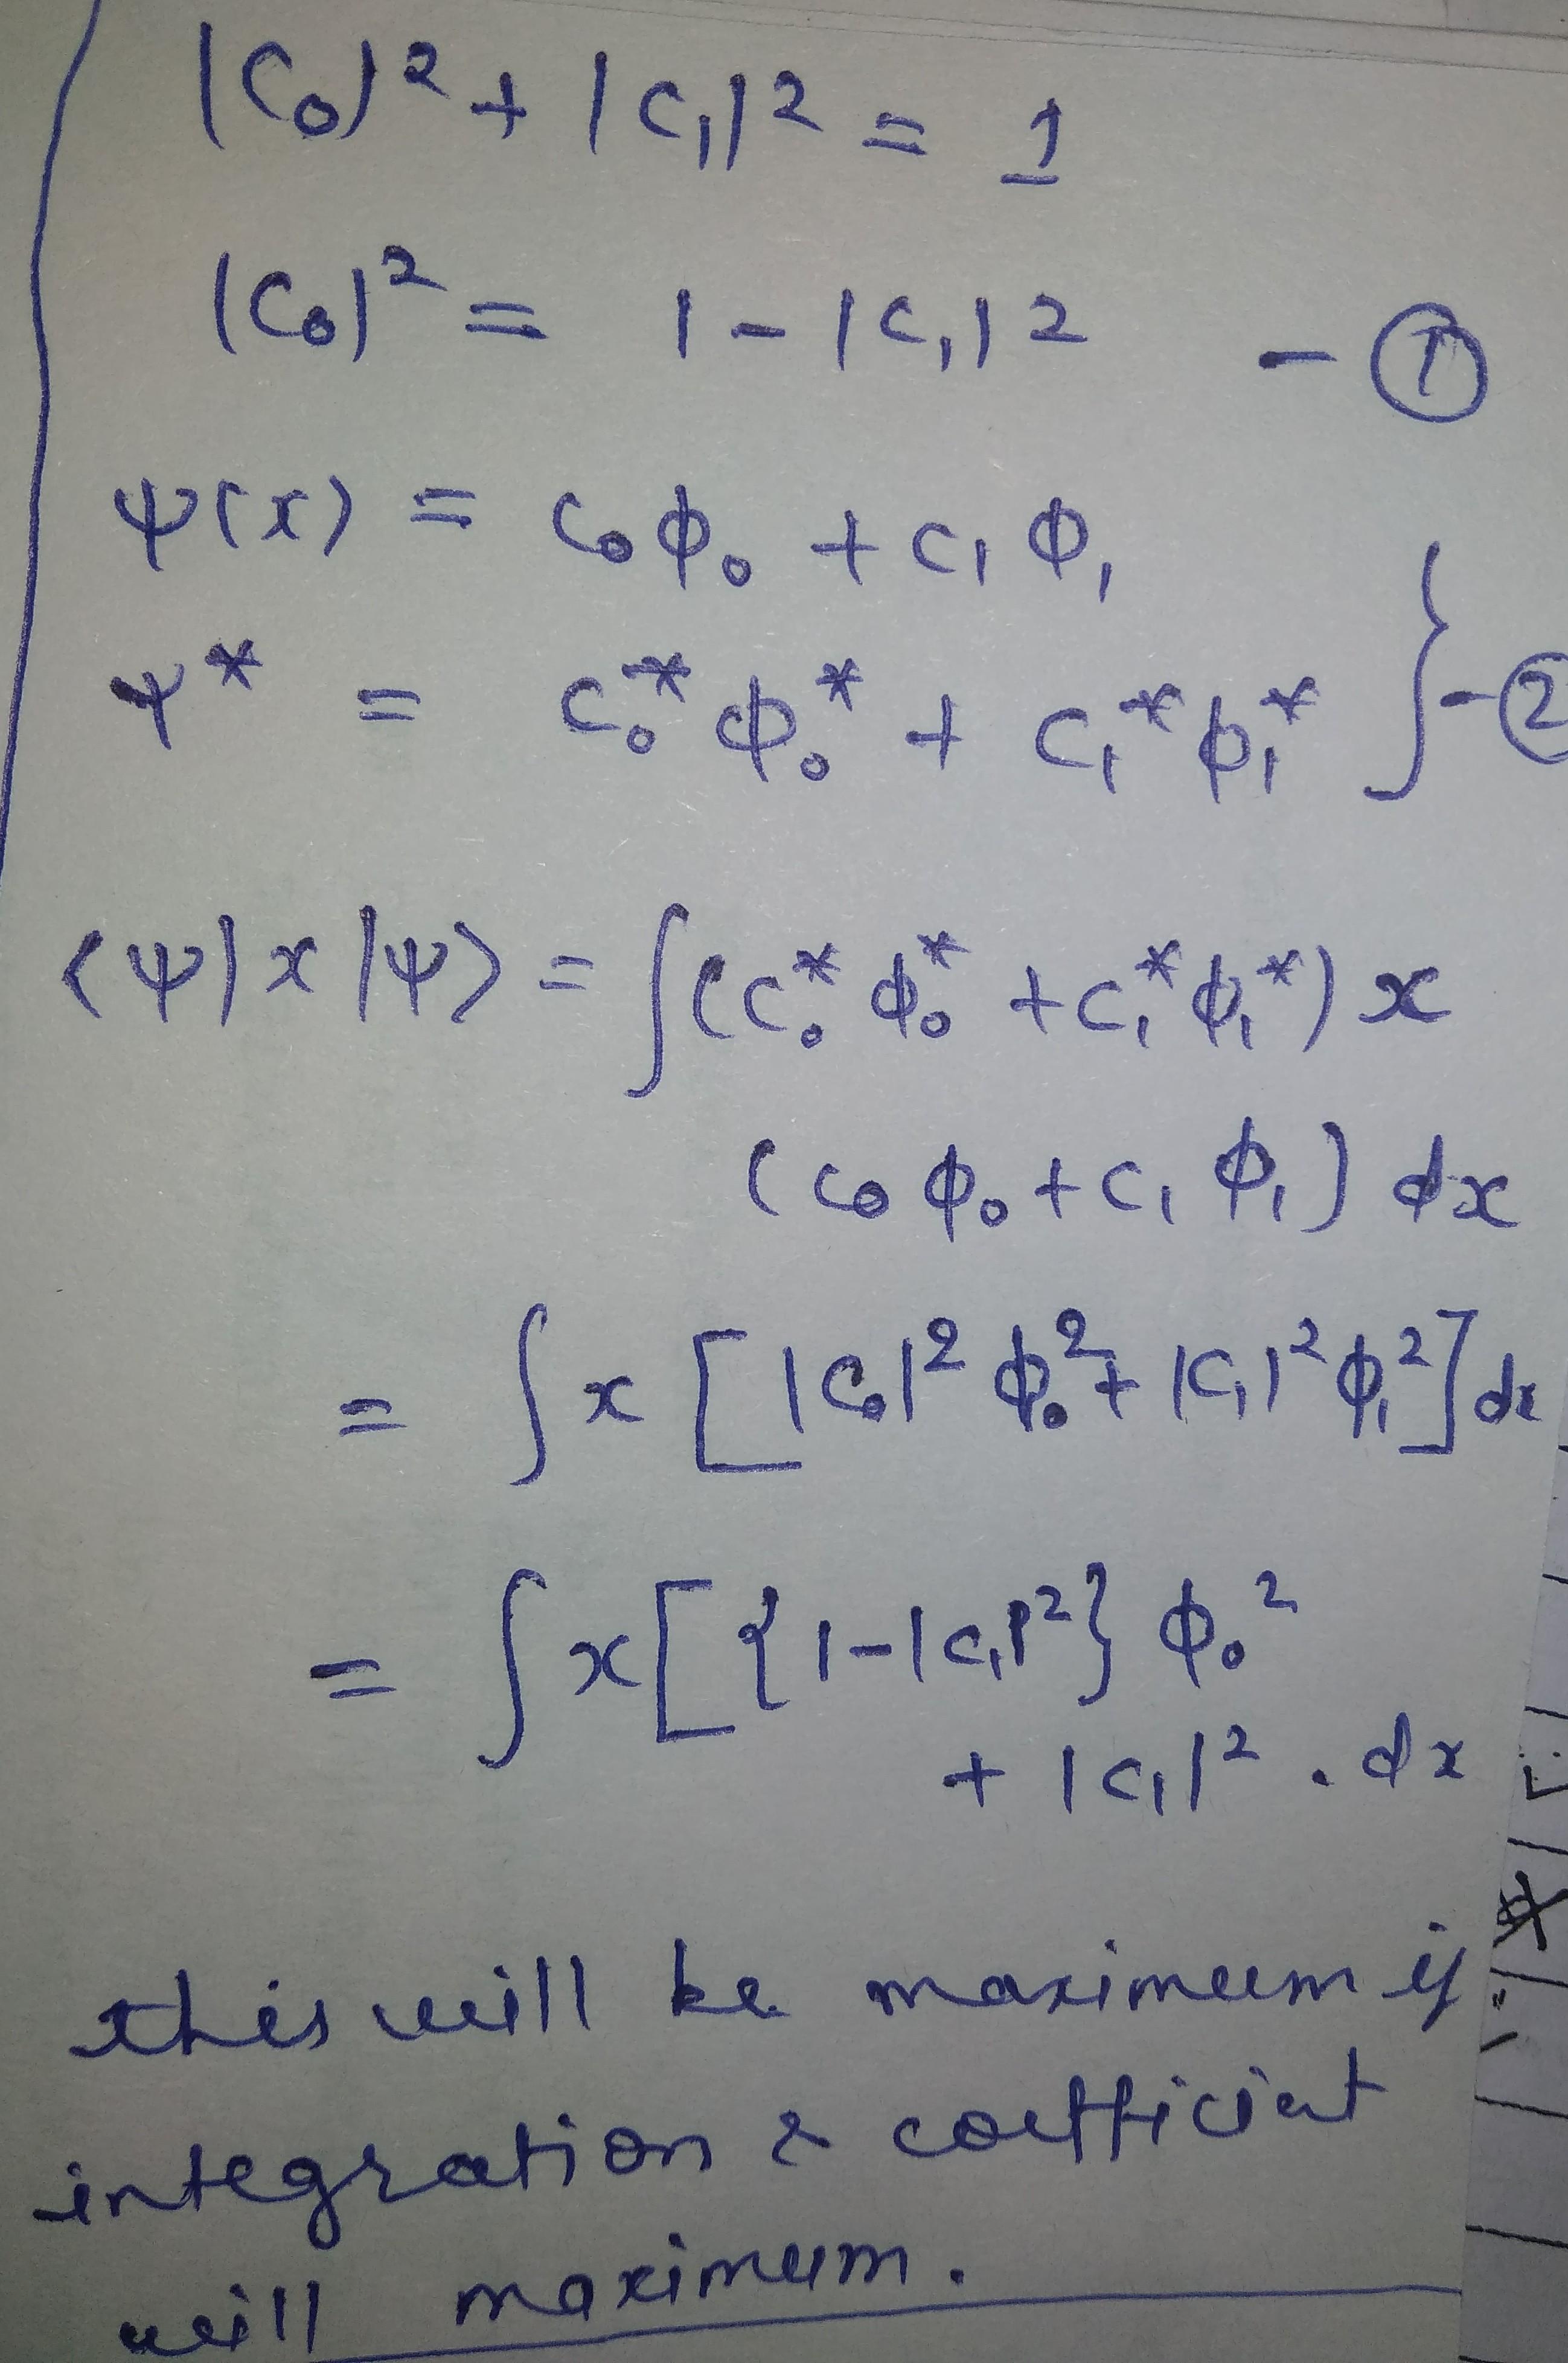 |C₀|² + |C₁|² = 1
|C₀|² = 1 - |C₁|² - ①
ψ(x) = C₀ϕ₀ + C₁ϕ₁
ψ* = C₀*ϕ₀* + C₁*ϕ₁* } - ②
⟨ψ|x|ψ⟩ = ∫(C₀*ϕ₀* + C₁*ϕ₁*) x
(C₀ϕ₀ + C₁ϕ₁) dx
= ∫ x [|C₀|²ϕ₀² + |C₁|²ϕ₁²] dx
= ∫ x [{1-|C₁|²} ϕ₀²
+ |C₁|² . dx
this will be maximum if
integration & coefficient
will maximum.